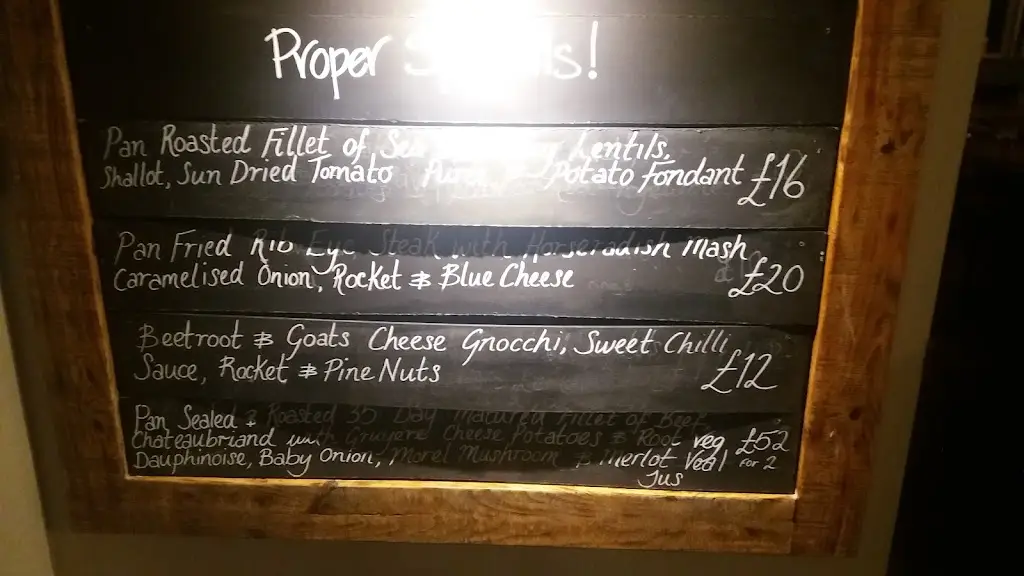 Proper
Pan Roasted Fillet of Lentils,
Shallot, Sun Dried Tomato Potato fondant £16
Pan Fried Rib Eye Steak with Horseradish Mash
Caramelised Onion, Rocket & Blue Cheese £20
Beetroot & Goats Cheese Gnocchi, Sweet Chilli
Sauce, Rocket & Pine Nuts £12
Pan Sealed & Roasted 35 Day Matured Fillet of Beef
Chateaubriand with Gruyere Cheese Potatoes & Root veg £52
Dauphinoise, Baby Onion, Morel Mushroom & Merlot Veal for 2
Jus